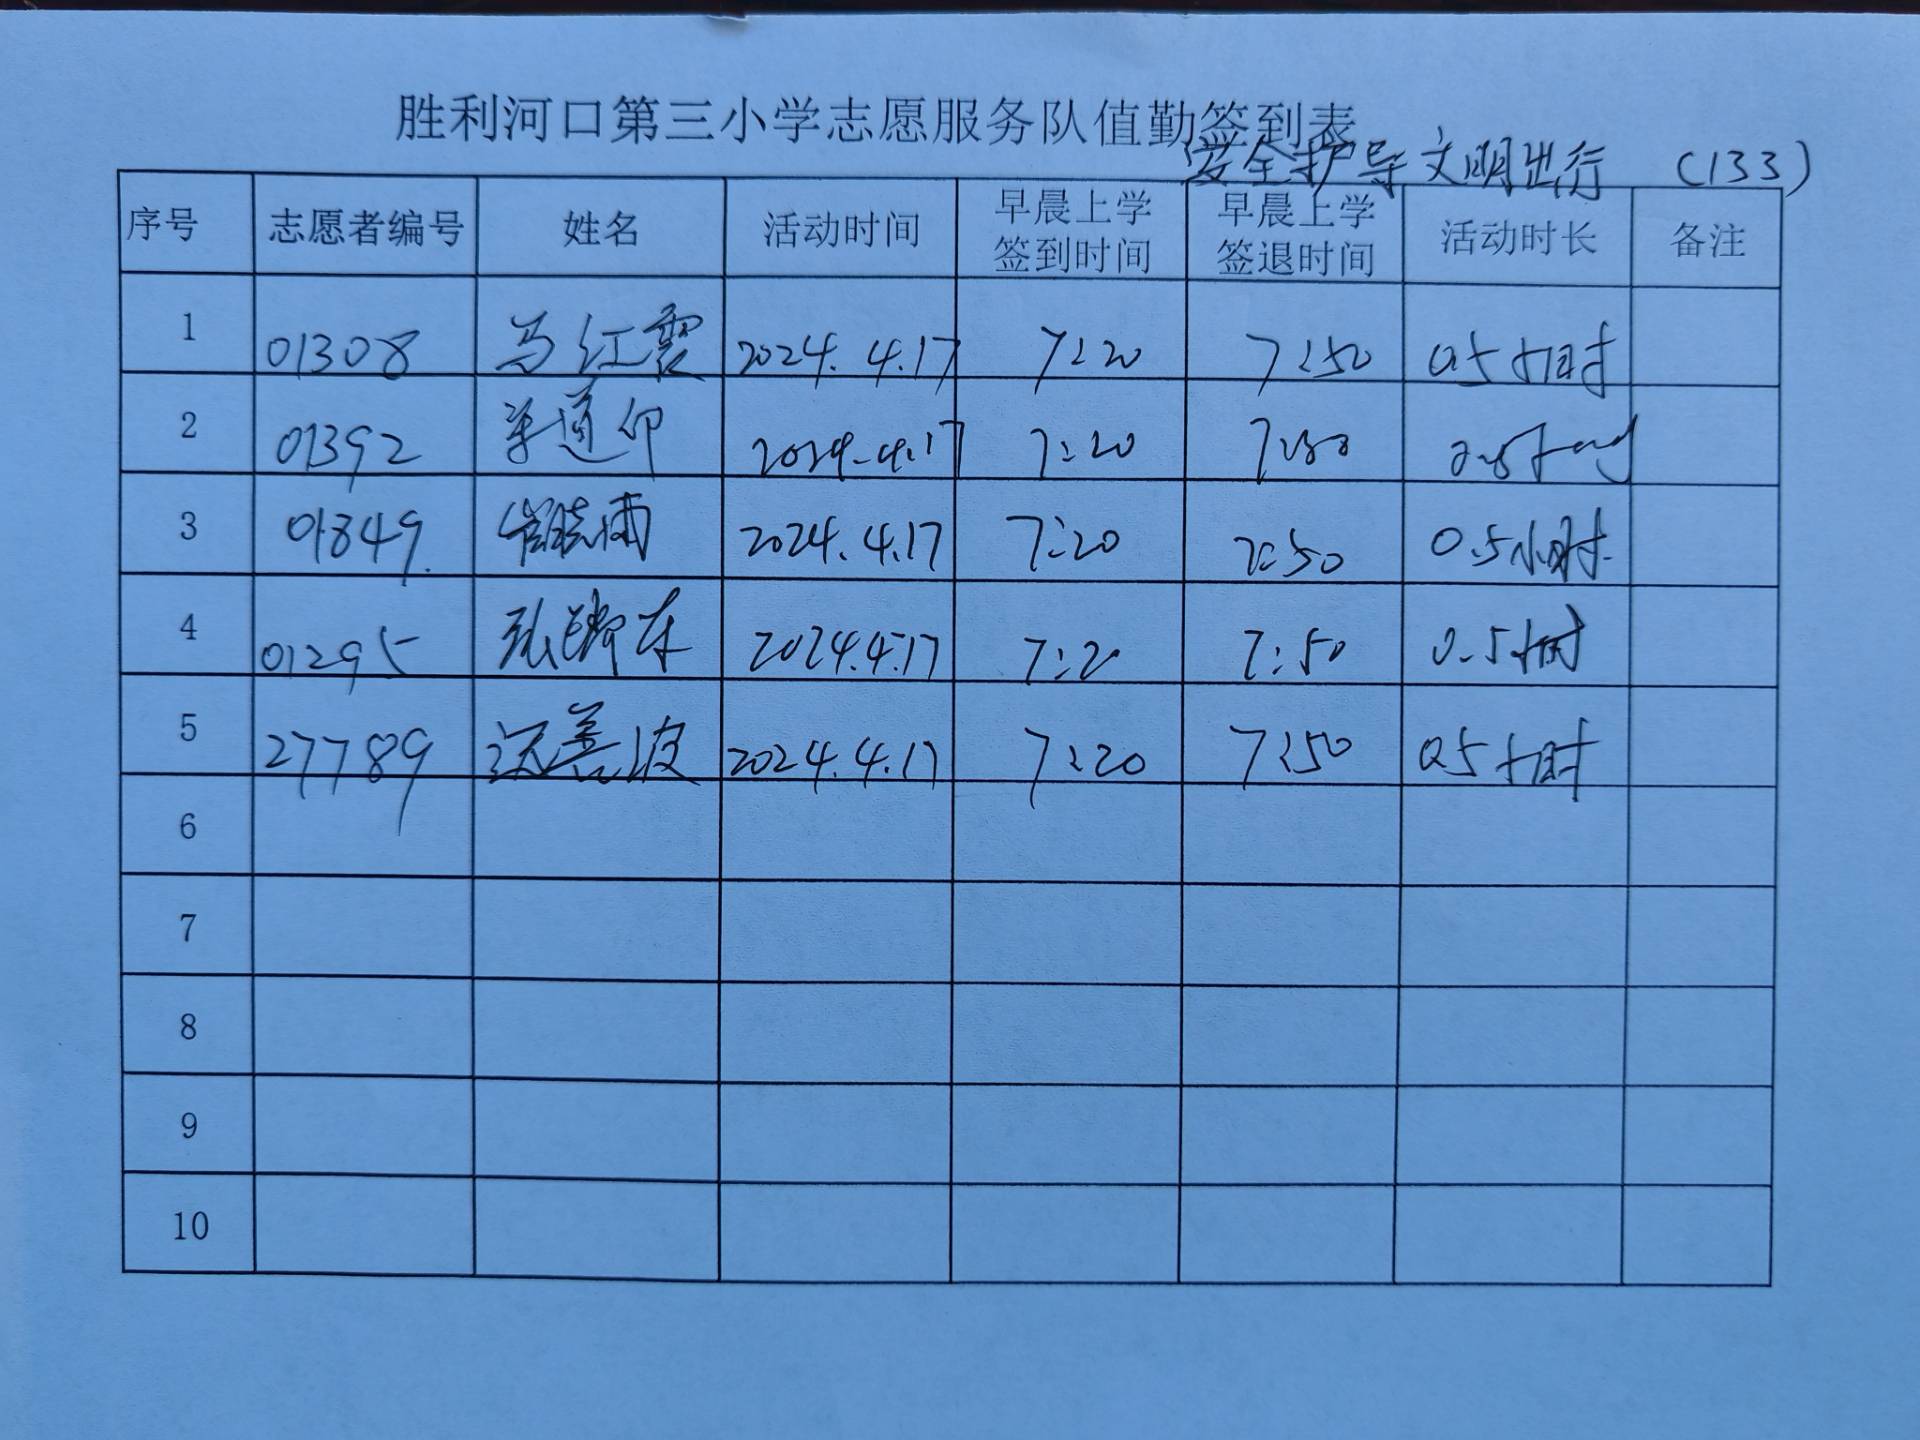 胜利河口第三小学志愿服务队值勤签到表
安全护导 文明出行 (133)
序号 志愿者编号 姓名 活动时间 早晨上学签到时间 早晨上学签退时间 活动时长 备注
1 01308 马红霞 2024.4.17 7:20 7:50 0.5小时
2 01392 2024.4.17 7:20 7:50 0.5小时
3 01849 崔晓雨 2024.4.17 7:20 7:50 0.5小时
4 01295 2024.4.17 7:20 7:50 0.5小时
5 27789 2024.4.17 7:20 7:50 0.5小时
6
7
8
9
10